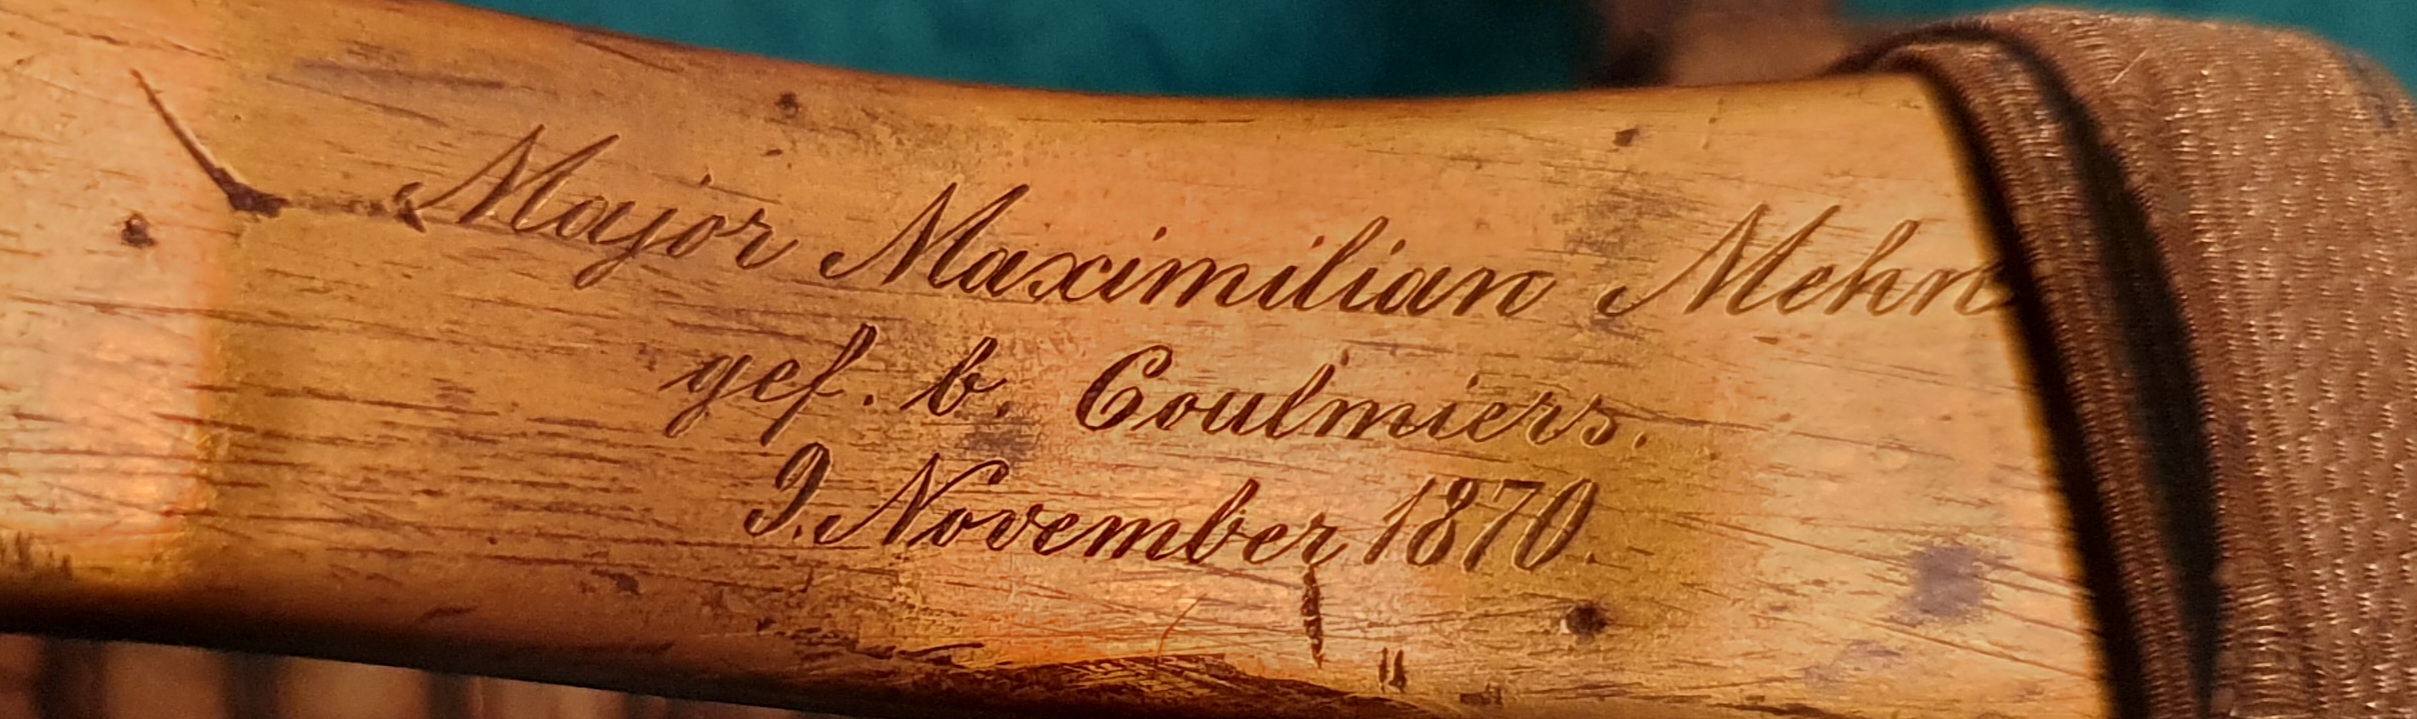 Major Maximilian Mehn
gef. b. Coulmiers.
9. November 1870.